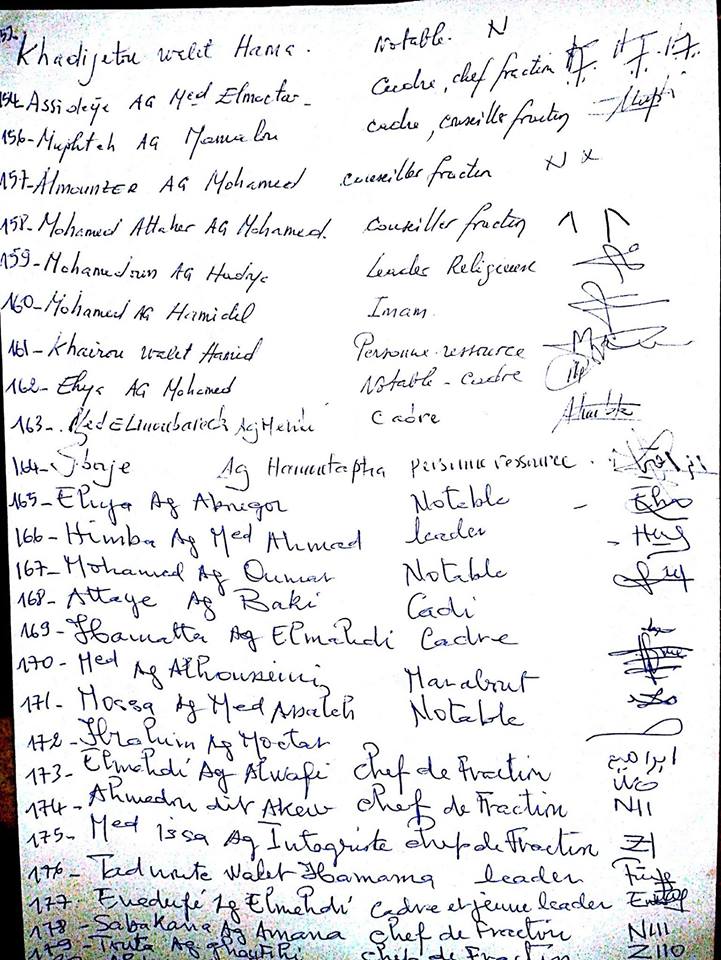 Khadijetou walet Hama. Notable. N
154-Assideye AG Med Elmoctar- Cadre, chef fraction
156-Muphtah AG Mamalou cadre, conseiller fraction
157-Almounzer AG Mohamed conseiller fraction N x
158-Mohamed Attaher AG Mohamed. Conseiller fraction
159-Mohamedoun AG Hadya Leader Religieuse
160-Mohamed AG Hamidel Imam.
161-Khairou walet Hamid Personne-ressource
162-Ehya AG Mohamed Notable-Cadre
163- Ag Cadre
164- Ag Hamutapha personne ressource.
165-Ehya Ag Abnegor Notable
166-Himba Ag Med Ahmad leader
167-Mohamed Ag Oumar Notable
168-Attaye Ag Baki Cadi
169-Hamatta Ag Elmahdi Cadre
170-Med Ag Alhousseini Marabout
171-Mossa Ag Med Assaleh Notable
172-Ibrahim Ag Moctar
173-Elmehdi Ag Alwafi chef de Fraction ابراهيم
174-Ahmedou dit Akew chef de Fraction NII
175-Med issa Ag Intagriste chef de Fraction Z1
176-Tadunte walet Hamama leader
177-Enadufé Ag Elmehdi cadre et jeune leader
178-Sabakana Ag Amana chef de Fraction NIII
179-Touta Ag chef de Fraction Z110